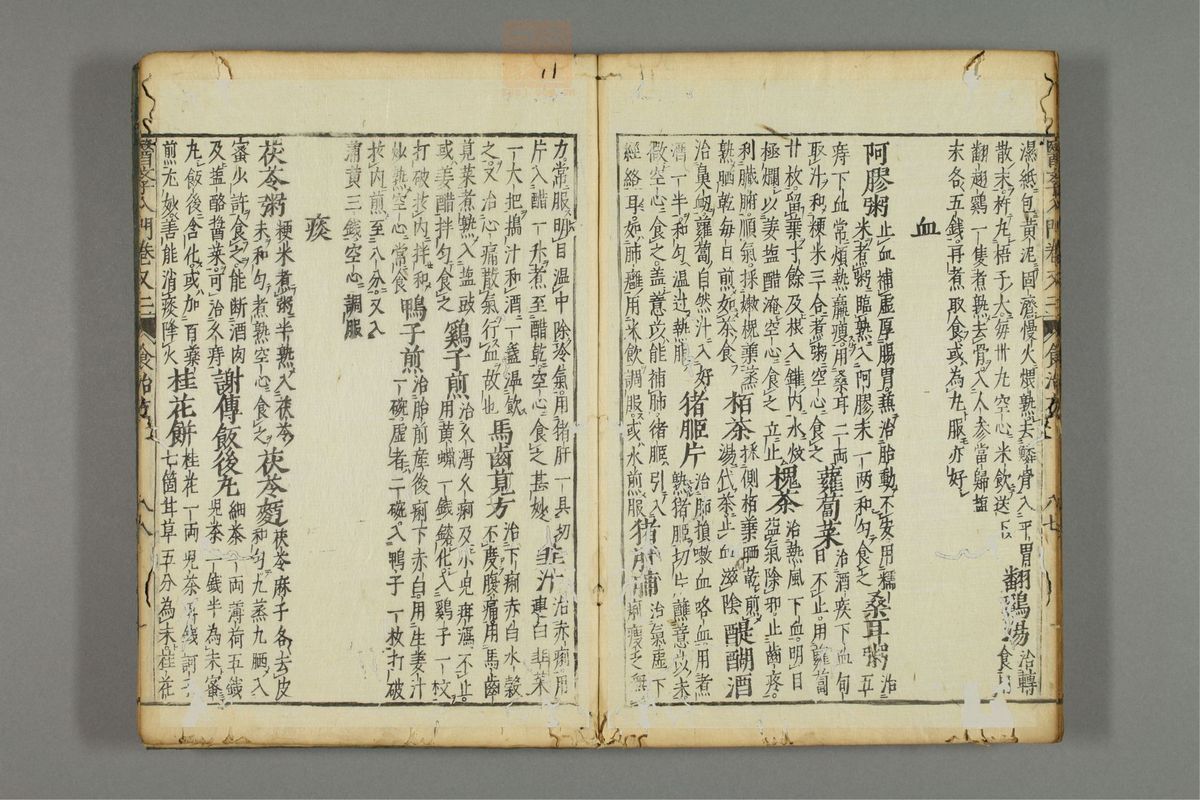 濕紙包黃泥固濟慢火煨熟去鱗骨入平胃
散末杵丸梧子大每卅丸空心米飲送下
翻鷄湯
治轉
食用
翻翅鷄一隻煮熟去骨入人參當歸盬
末各五錢再煮取食或為丸服亦好
血
阿膠粥
止血補虛厚腸胃兼治胎動不安用糯
米煮粥臨熟入阿膠末一兩和勻食之
桑耳粥
治
五
痔下血常煩熱羸瘦用桑耳二兩
取汁和粳米三合煮粥空心食之
蘿蔔菜
治酒疾下血旬
日不止用蘿蔔
廿枚留葉寸餘及根入鑵內水炆
極爛以姜盬醋淹空心食之立止
槐茶
治熱風下血明目
益氣除邪止齒疼
利臟腑順氣採嫩槐葉蒸
熟晒乾每日煎如茶食
柏茶
採側柏葉晒乾煎
湯代茶止血滋陰
醍醐酒
治鼻衂蘿蔔自然汁入好
酒一半和勻溫過熱服
猪胰片
治肺損嗽血咯血用煮
熟猪胰切片蘸薏苡末
微空心食之盖薏苡能補肺猪胰引入
經絡耳如肺癰用米飲調服或水煎服
猪肝脯
治氣虛下
痢瘦乏無
力常服明目溫中除冷氣用猪肝一具切
片入醋一升煮至醋乾空心食之甚妙
韭汁
治赤痢用
連白韭菜
一大把搗汁和酒一盞溫飲
之又治心痛散氣行血故也
馬齒莧方
治下痢赤白水穀
不度腹痛用馬齒
莧菜煮熟入盬豉
或姜醋拌勻食之
鷄子煎
治久瀉久痢及小兒疳瀉不止
用黃蠟一錢鎔化入鷄子一枚
打破拔內拌和
妙熟空心常食
鴨子煎
治胎前產後痢下赤白用生姜汁
一碗虛者二碗入鴨子一枚打破
拔內煎至八分又入
蒲黃三錢空心調服
痰
茯苓粥
粳米煮粥半熟入茯苓
末和勻煮熟空心食之
茯苓麪
茯苓麻子各去皮
和勻九蒸九晒入
蜜少許食之能斷酒肉
及盬酪醬菜可治久痔
謝傳飯後丸
細茶一兩薄荷五錢
兒茶一錢半為末蜜
丸飯後含化或加百藥
煎尤妙善能消痰降火
桂花餅
桂花一兩兒茶五錢訶子
七箇甘草五分為末桂花
醫學入門卷又三
食治
八七
醫學入門卷又三
食治
八八
11